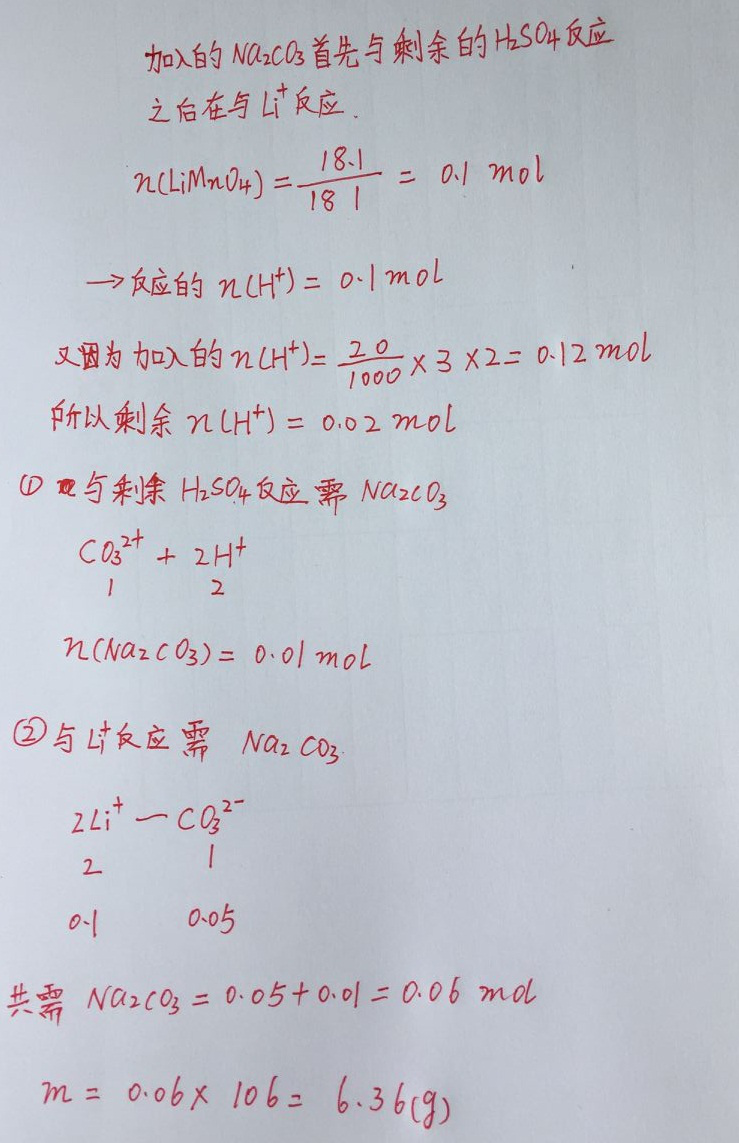 加入的 Na₂CO₃ 首先与剩余的 H₂SO₄ 反应
之后在与 Li⁺ 反应.
n(LiMnO₄) = 18.1/181 = 0.1 mol
→ 反应的 n(H⁺) = 0.1 mol
又因为加入的 n(H⁺) = 20/1000 × 3 × 2 = 0.12 mol
所以剩余 n(H⁺) = 0.02 mol
① 与剩余 H₂SO₄ 反应需 Na₂CO₃
CO₃²⁺ + 2H⁺
1 2
n(Na₂CO₃) = 0.01 mol
② 与 Li⁺ 反应需 Na₂CO₃.
2Li⁺ — CO₃²⁻
2 1
0.1 0.05
共需 Na₂CO₃ = 0.05 + 0.01 = 0.06 mol
m = 0.06 × 106 = 6.36(g)